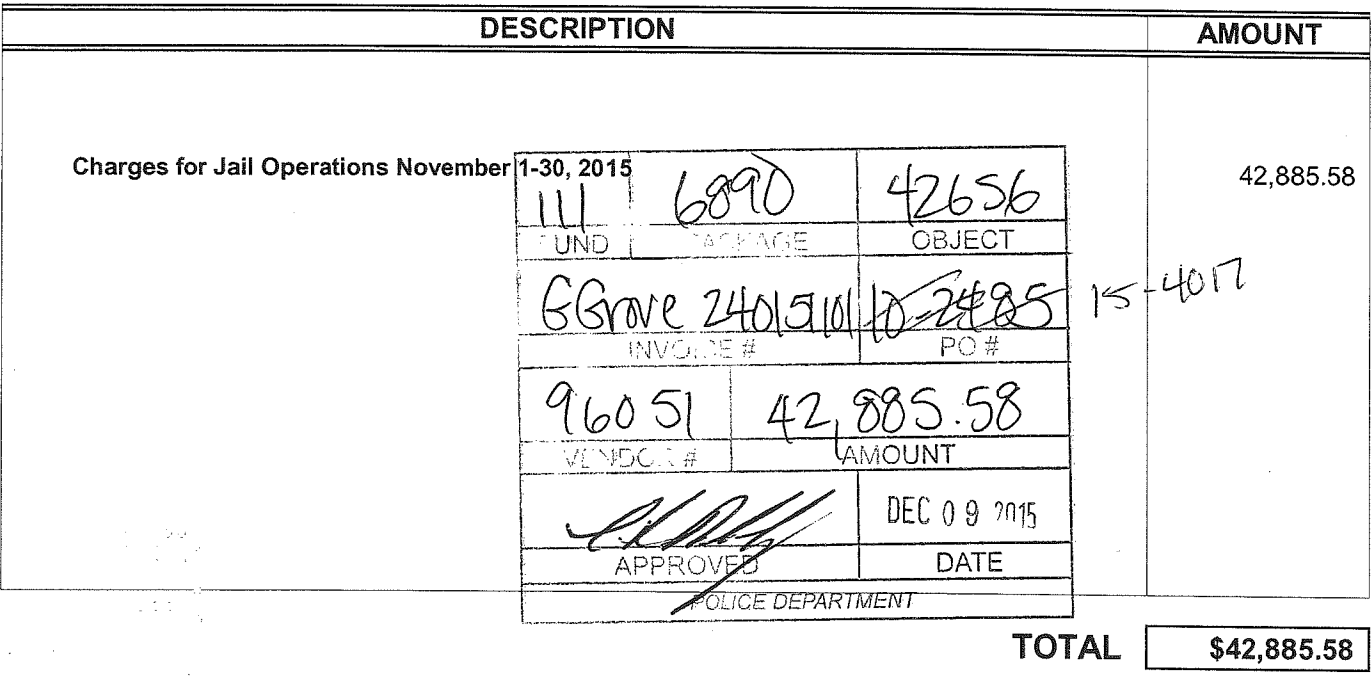 DESCRIPTION AMOUNT
Charges for Jail Operations November 1-30, 2015 42,885.58
111 6890 42656
FUND PACKAGE OBJECT
GGrove 24015101 10-2485 15-4017
INVOICE # PO #
96051 42,885.58
VENDOR # AMOUNT
DEC 09 2015
APPROVED DATE
POLICE DEPARTMENT
TOTAL $42,885.58